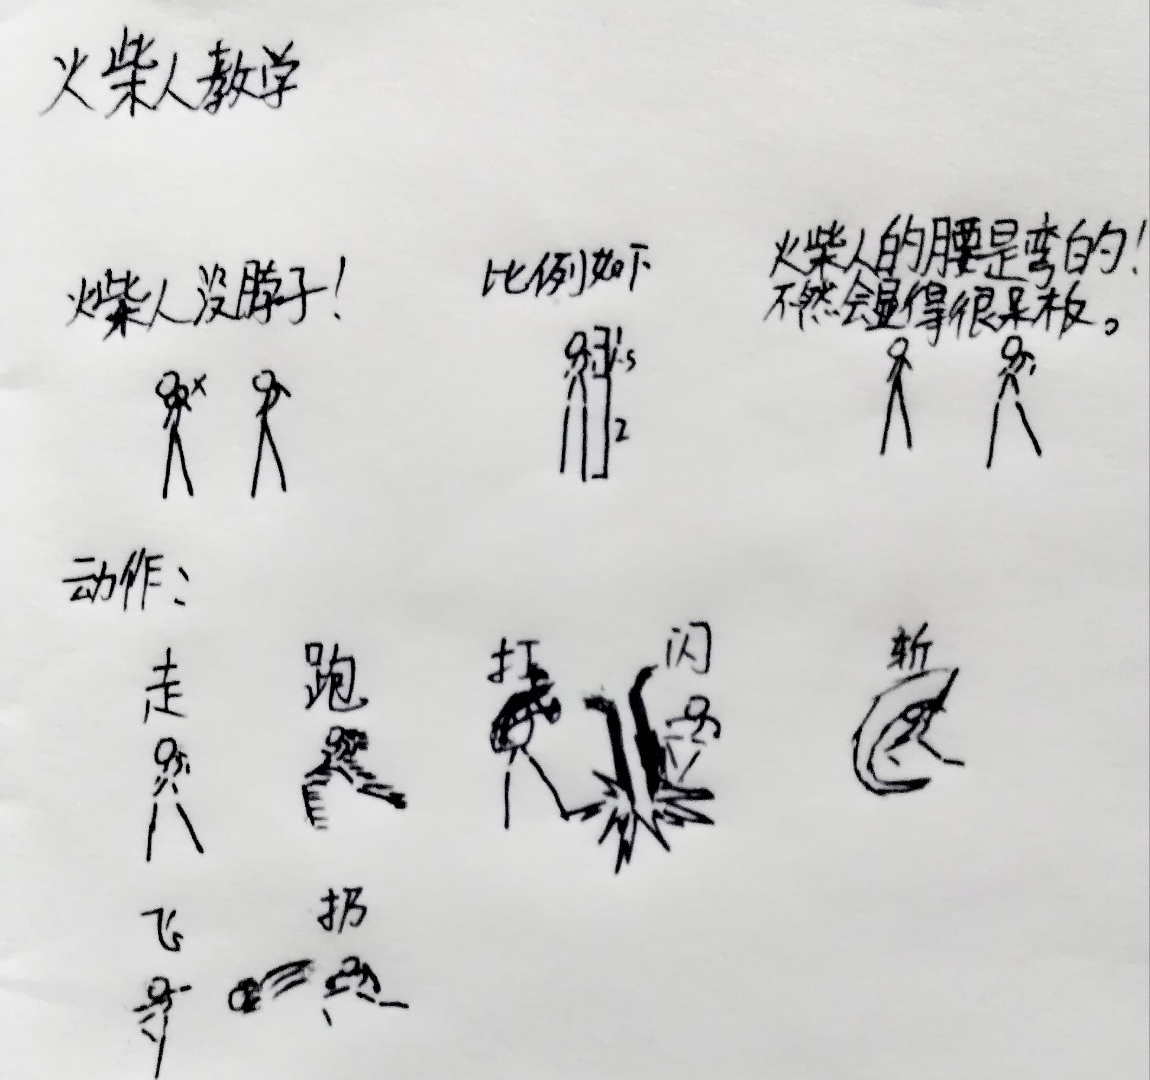 火柴人教学
火柴人没脖子！
比例如下
火柴人的腰是弯的！
不然会显得很呆板。
x
1.5
2
动作：
走
跑
打
闪
斩
飞
扔